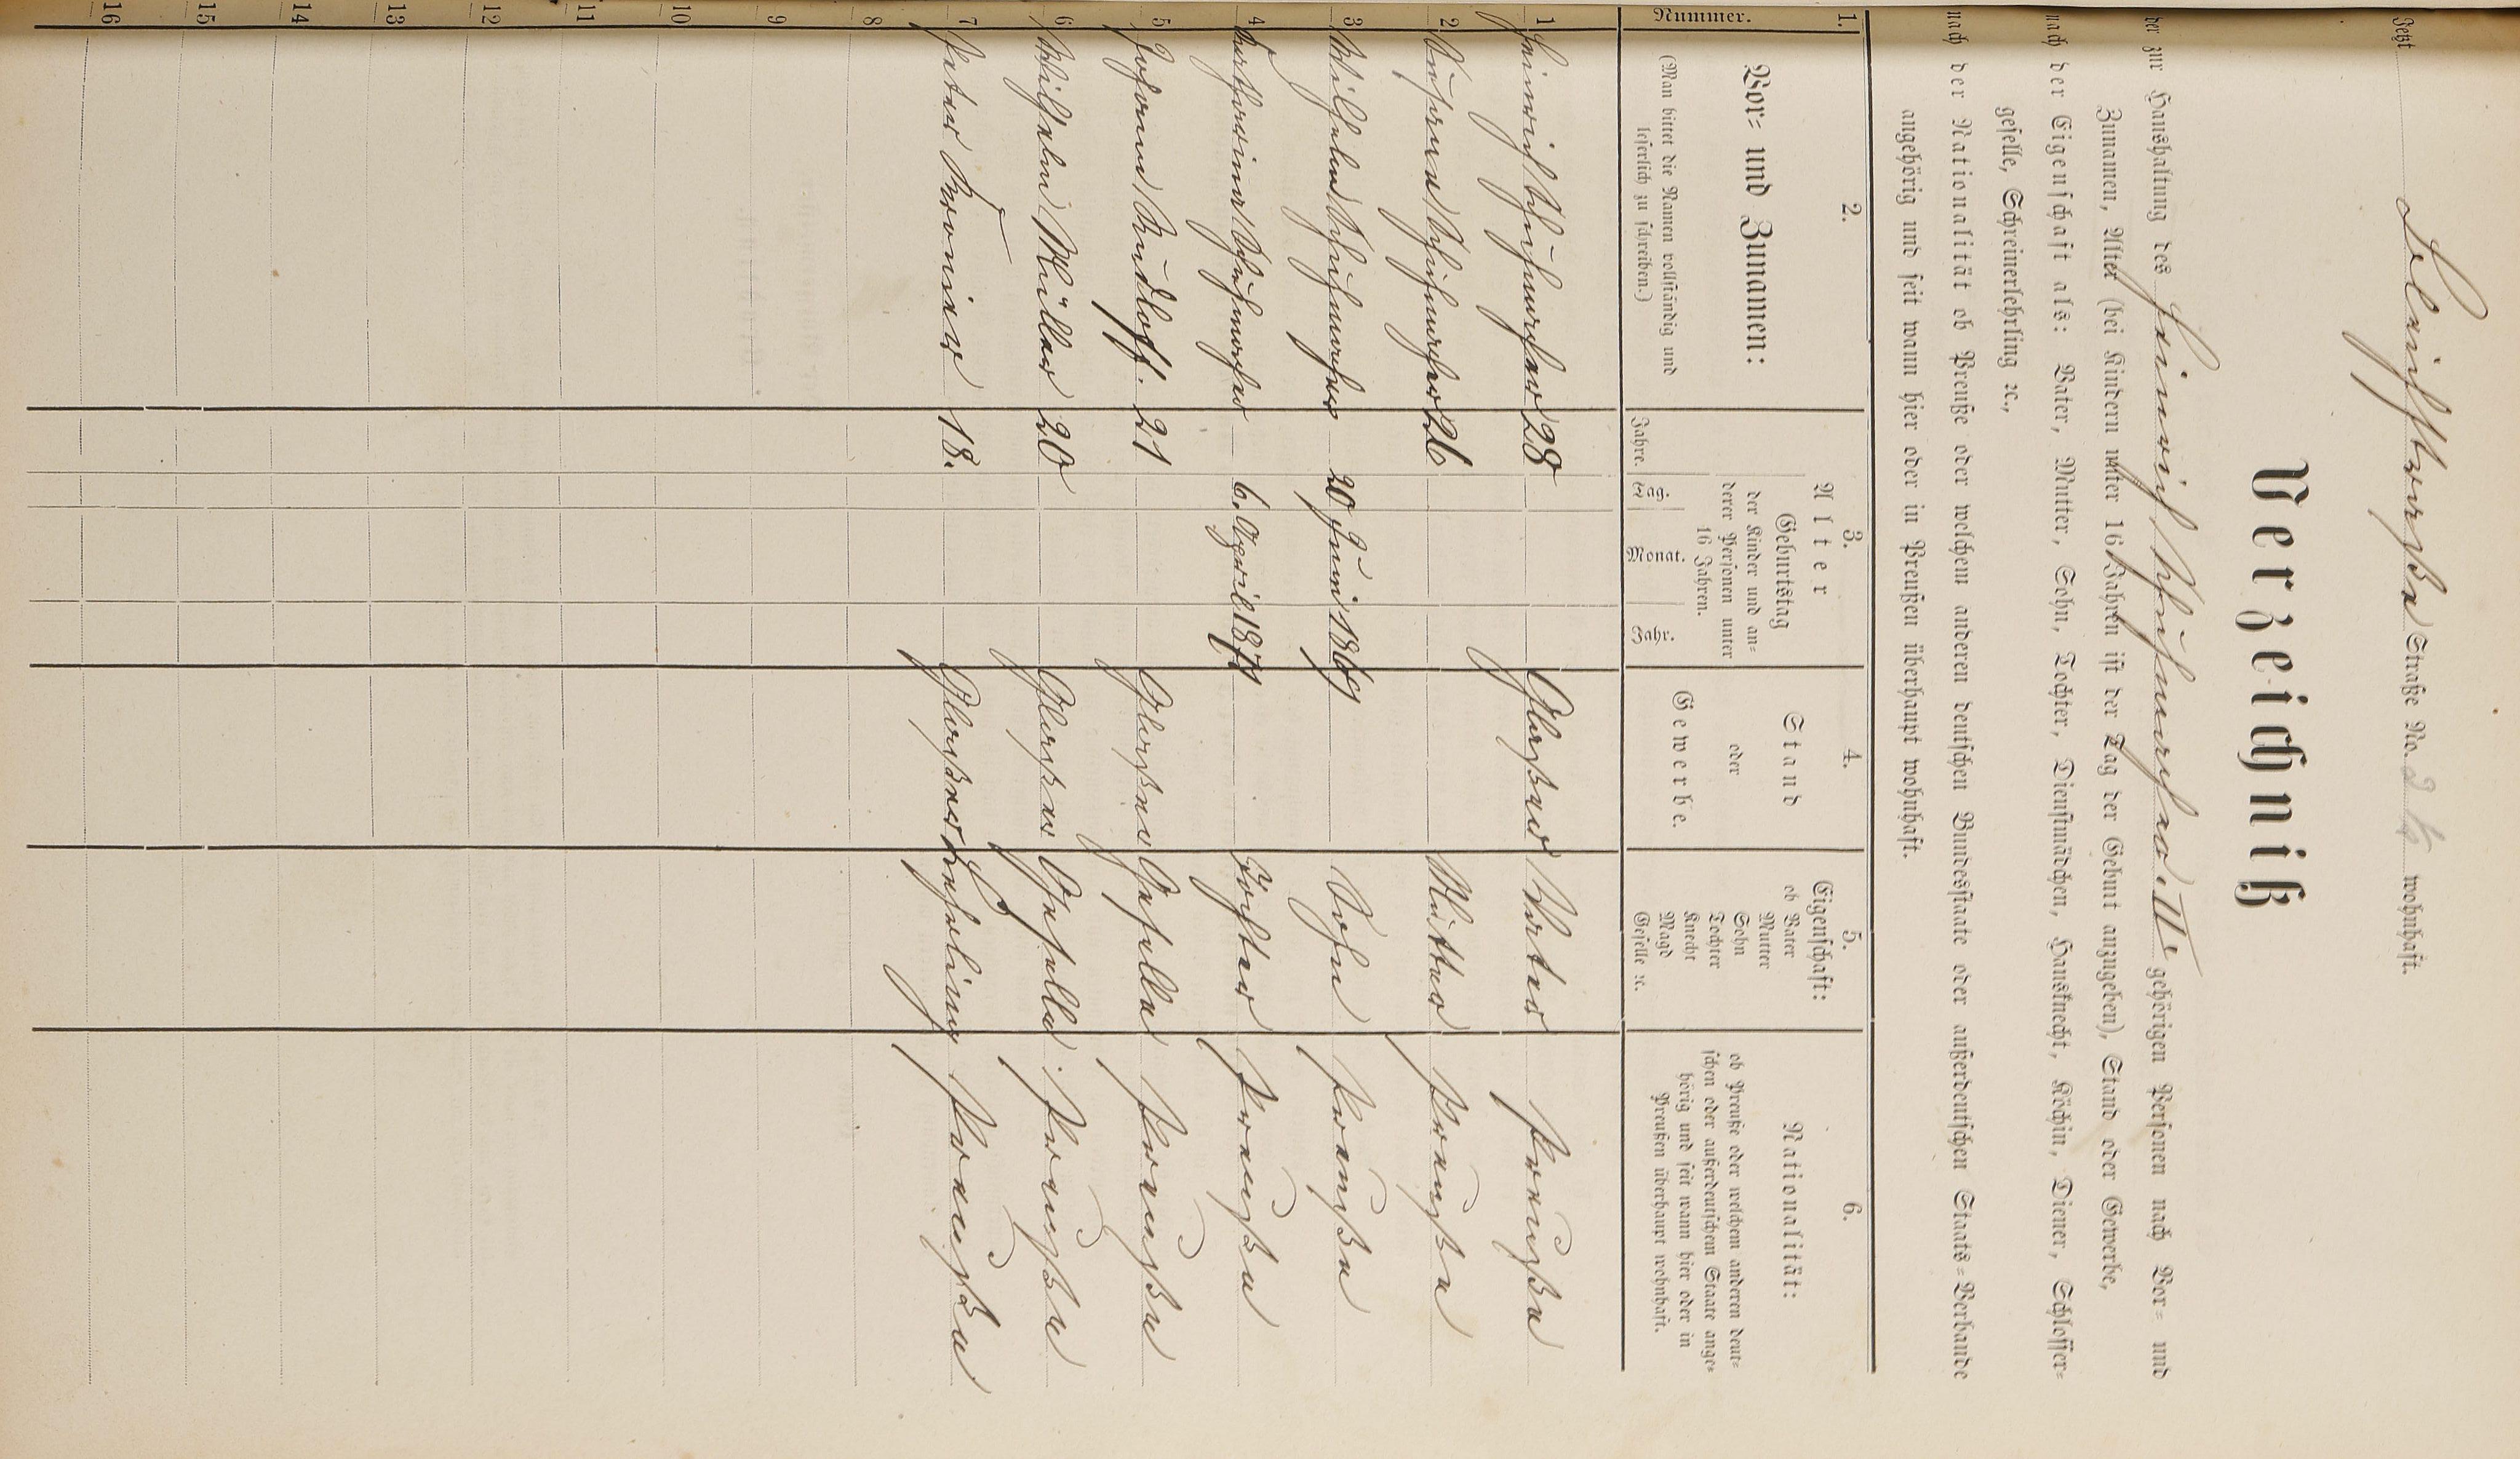 Jetzt Bleichstraße Straße No. 24 wohnhaft.
Verzeichniß
der zur Haushaltung des Heinrich Schuhmacher II gehörigen Personen nach Vor- und
Zunamen, Alter (bei Kindern unter 16 Jahren ist der Tag der Geburt anzugeben), Stand oder Gewerbe,
nach der Eigenschaft als: Vater, Mutter, Sohn, Tochter, Dienstmädchen, Hausknecht, Köchin, Diener, Schlosser-
geselle, Schreinerlehrling ꝛc.,
nach der Nationalität ob Preuße oder welchem anderen deutschen Bundesstaate oder außerdeutschen Staats-Verbande
angehörig und seit wann hier oder in Preußen überhaupt wohnhaft.
1. 2. 3. 4. 5. 6.
Nummer.
Vor- und Zunamen:
(Man bittet die Namen vollständig und
leserlich zu schreiben.)
Alter
Jahre.
Geburtstag
der Kinder und an-
derer Personen unter
16 Jahren.
Tag. Monat. Jahr.
Stand
oder
Gewerbe.
Eigenschaft:
ob Vater
Mutter
Sohn
Tochter
Knecht
Magd
Geselle ꝛc.
Nationalität:
ob Preuße oder welchem anderen deut-
schen oder außerdeutschem Staate ange-
hörig und seit wann hier oder in
Preußen überhaupt wohnhaft.
1 Heinrich Schuhmacher 28 Glaßer Vater Preuße
2 Schuhmacher 26 Mutter Preuße
3 Wilhelm Schuhmacher 20 Juni 1869 Sohn Preuße
4 Katharina Schuhmacher 6. April 1871 Tochter Preuße
5 Johann Rudloff. 21 Glaßer Geselle Preuße
6 Wilhelm Müller 20 Glaßer Geselle. Preuße
7 Peter Kronier 18. Glaßer Lehrling Preuße
8
9
10
11
12
13
14
15
16